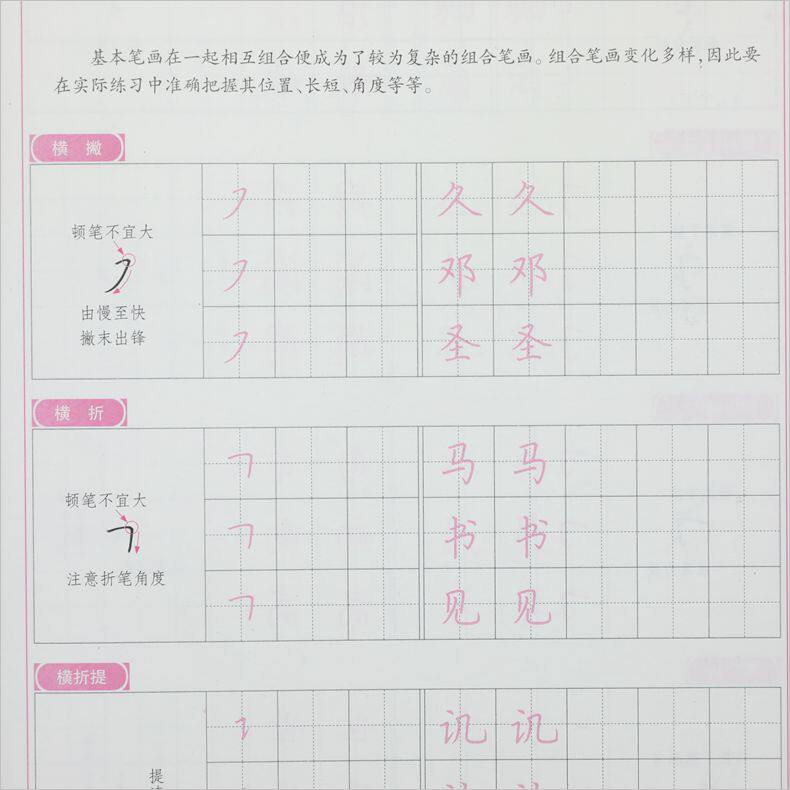 基本笔画在一起相互组合便成为了较为复杂的组合笔画。组合笔画变化多样，因此要
在实际练习中准确把握其位置、长短、角度等等。
横 撇
顿笔不宜大
由慢至快
撇末出锋
㇇ 久 久
㇇ 邓 邓
㇇ 圣 圣
横 折
顿笔不宜大
注意折笔角度
㇕ 马 马
㇕ 书 书
㇕ 见 见
横折提
提
㇊ 讥 讥